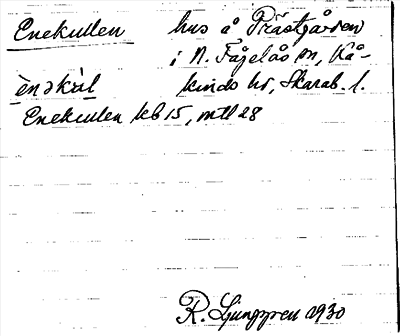 Enekullen hus å Prästgården
i N. Fågelås sn, Kå-
ènəkùl kinds hd, Skarab. l.
Enekullen kb 15, mtl 28
R. Ljunggren 1930